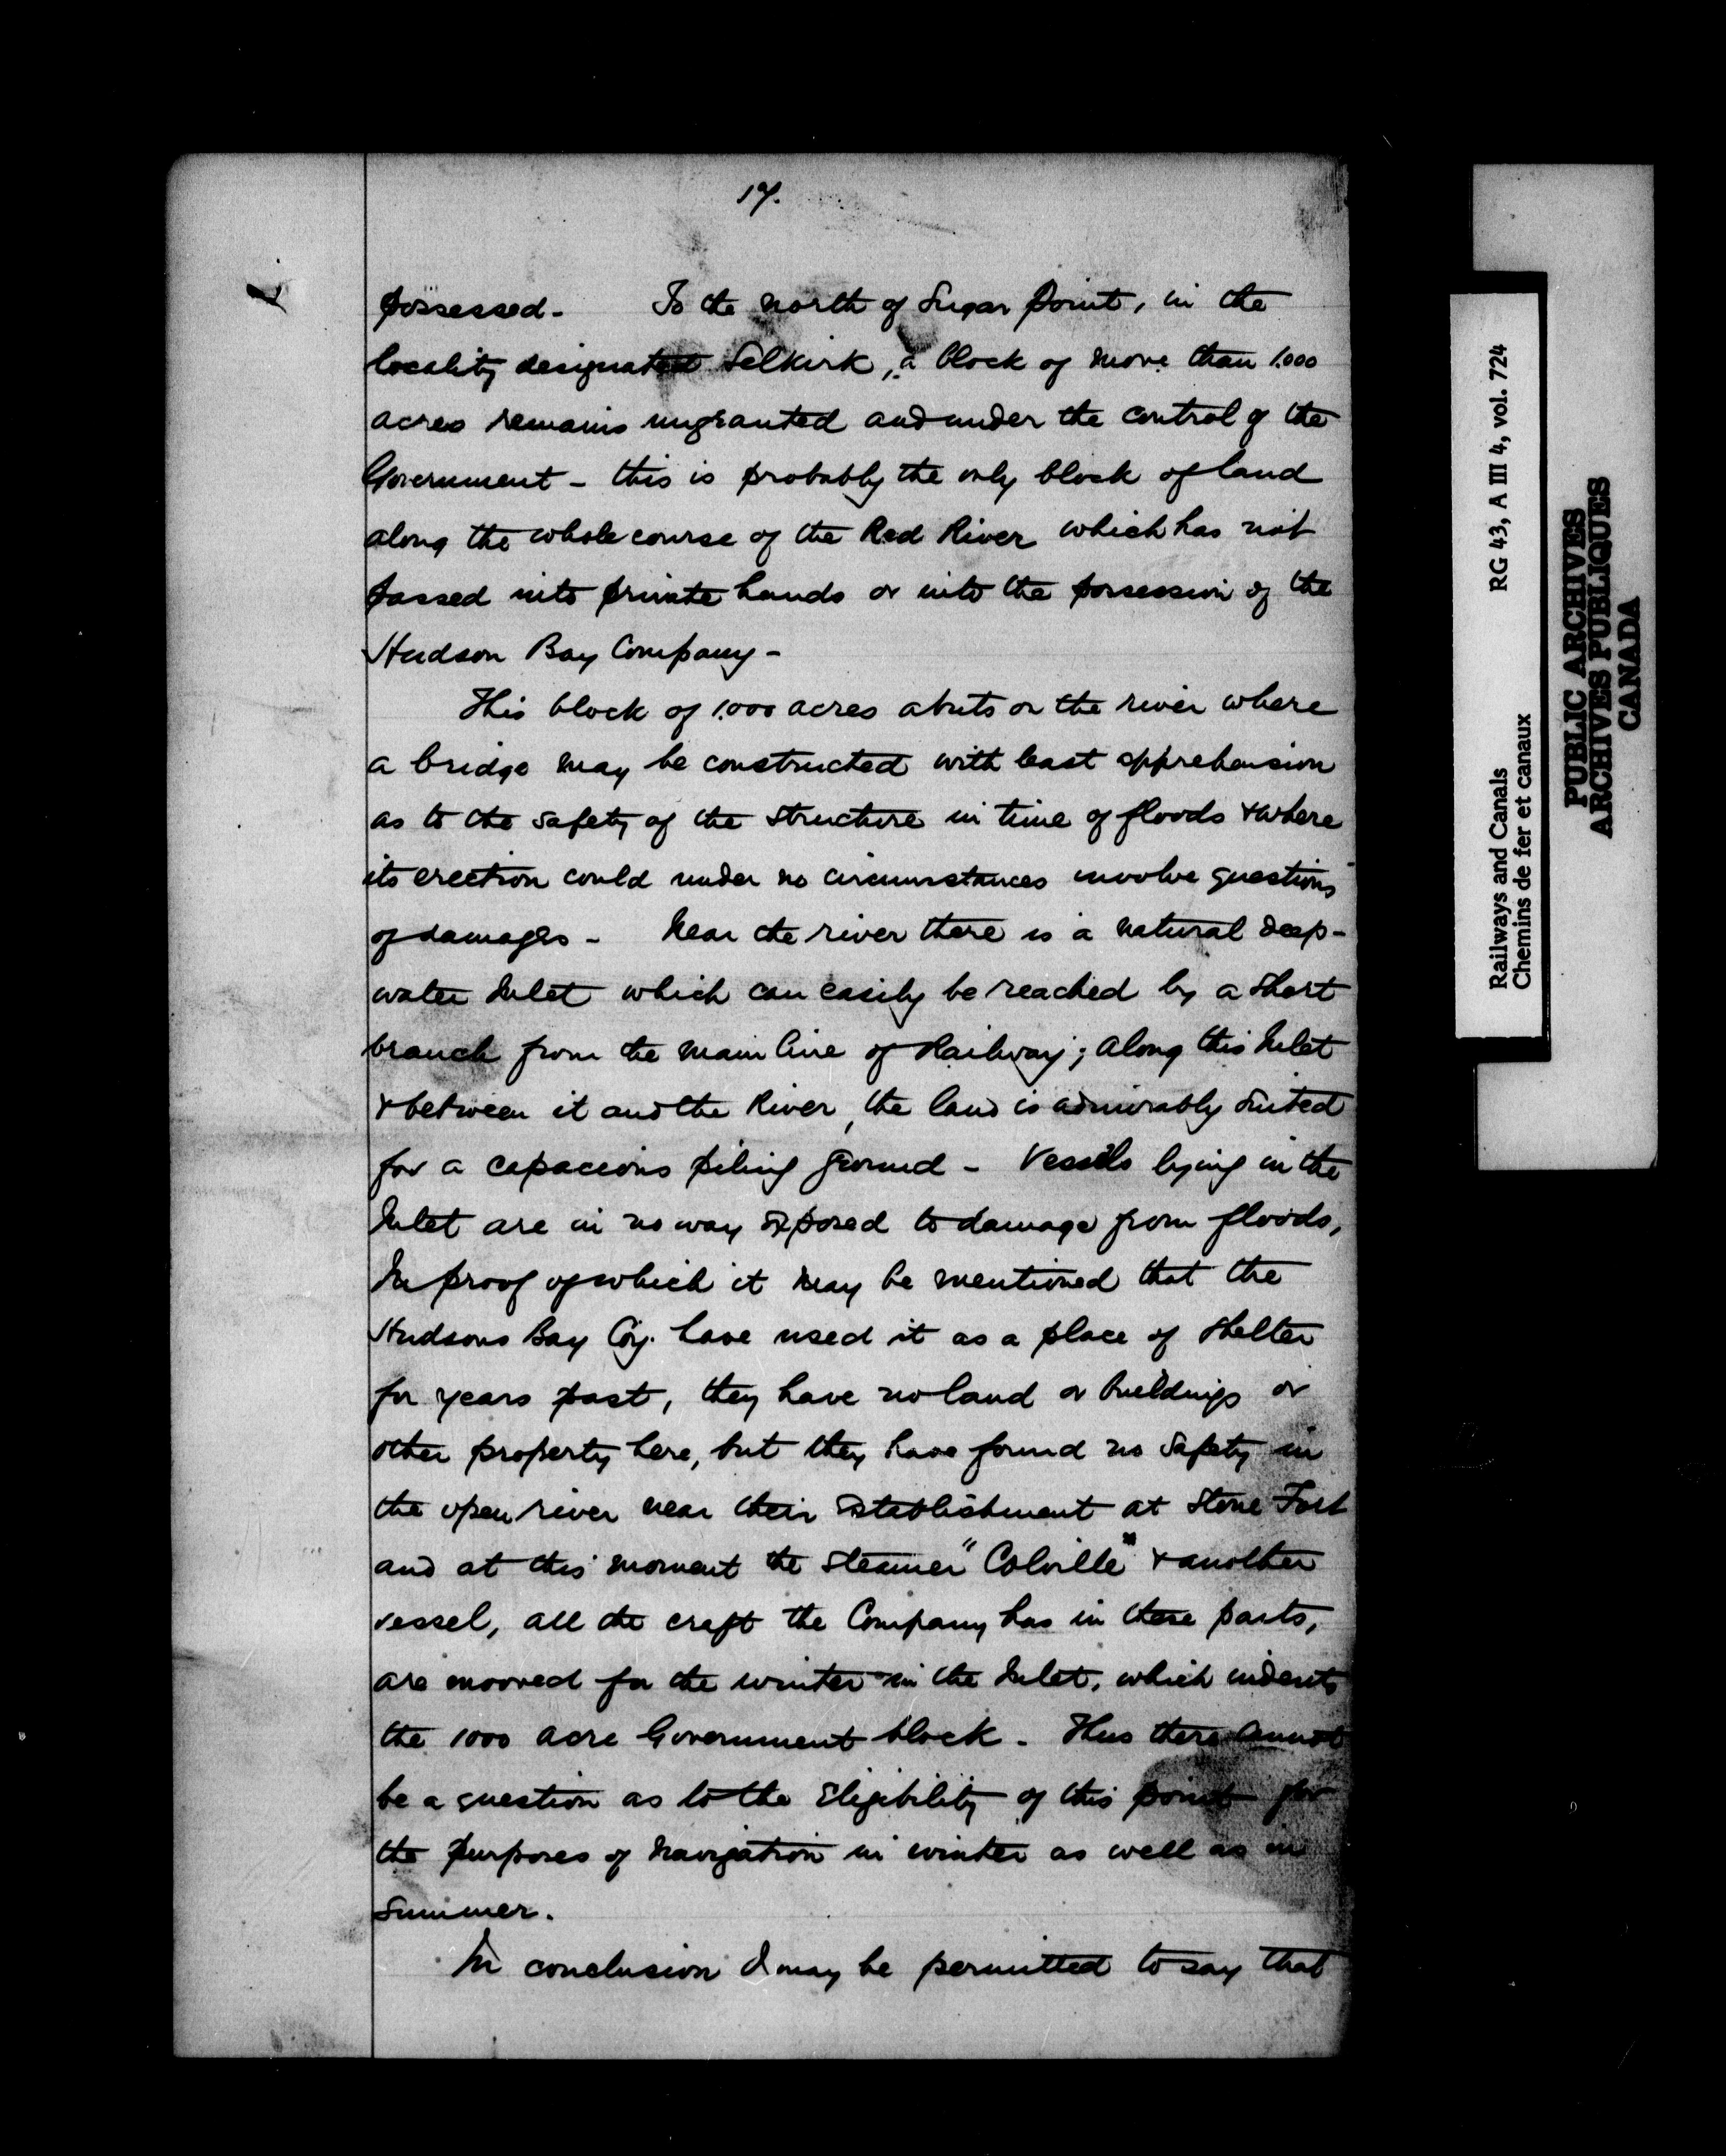 17.
possessed - To the north of Sugar Point, in the
locality designated Selkirk, a block of more than 1.000
acres remains ungranted and under the control of the
Government - this is probably the only block of land
along the whole course of the Red River which has not
passed into private hands or into the possession of the
Hudson Bay Company -
This block of 1.000 acres abuts on the river where
a bridge may be constructed with least apprehension
as to the safety of the structure in time of floods & where
its erection could under no circumstances involve questions
of damages - Near the river there is a natural deep-
water Inlet which can easily be reached by a short
branch from the main line of Railway; Along this Inlet
& between it and the River, the land is admirably suited
for a capacious piling ground - Vessels lying in the
Inlet are in no way exposed to damage from floods,
In proof of which it may be mentioned that the
Hudsons Bay Coy. have used it as a place of shelter
for years past, they have no land or buildings or
other property here, but they have found no safety in
the open river near their Establishment at Stone Fort
and at this moment the Steamer "Colville" & another
vessel, all the craft the Company has in these parts,
are moored for the winter in the Inlet, which indents
the 1000 acre Government block - Thus there cannot
be a question as to the Eligibility of this point for
the purposes of Navigation in winter as well as in
Summer.
In conclusion I may be permitted to say that
Railways and Canals RG 43, A III 4, vol. 724
Chemins de fer et canaux
PUBLIC ARCHIVES
ARCHIVES PUBLIQUES
CANADA